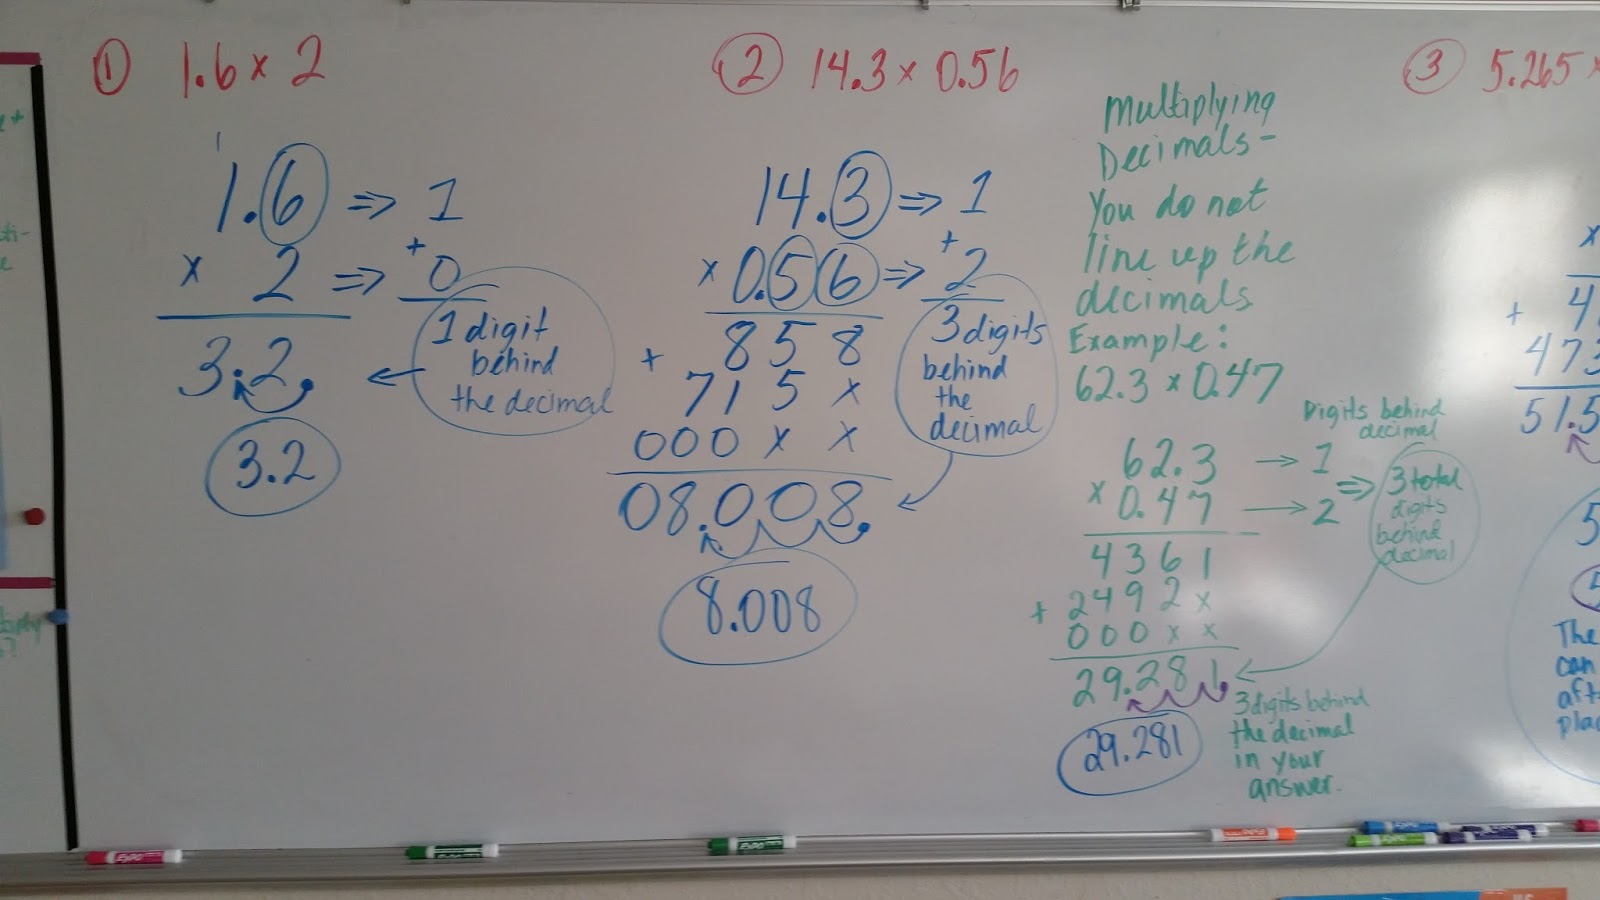 ① 1.6 x 2
1
1.6 ⇒ 1
x 2 ⇒ + 0
3.2.
1 digit
behind
the decimal
3.2
② 14.3 x 0.56
14.3 ⇒ 1
x 0.56 ⇒ + 2
858
+ 715x
000xx
08.008.
3 digits
behind
the
decimal
8.008
Multiplying
Decimals-
You do not
line up the
decimals.
Example:
62.3 x 0.47
62.3 → 1
x 0.47 → 2
⇒ 3 total
digits
behind
decimal
Digits behind
decimal
4361
+ 2492x
000xx
29.281.
3 digits behind
the decimal
in your
answer.
29.281
③ 5.265 x
x
+ 4
473
51.5
5
5
The
can
aft
plac
EXPO
EXPO
EXPO
EXPO
EXPO